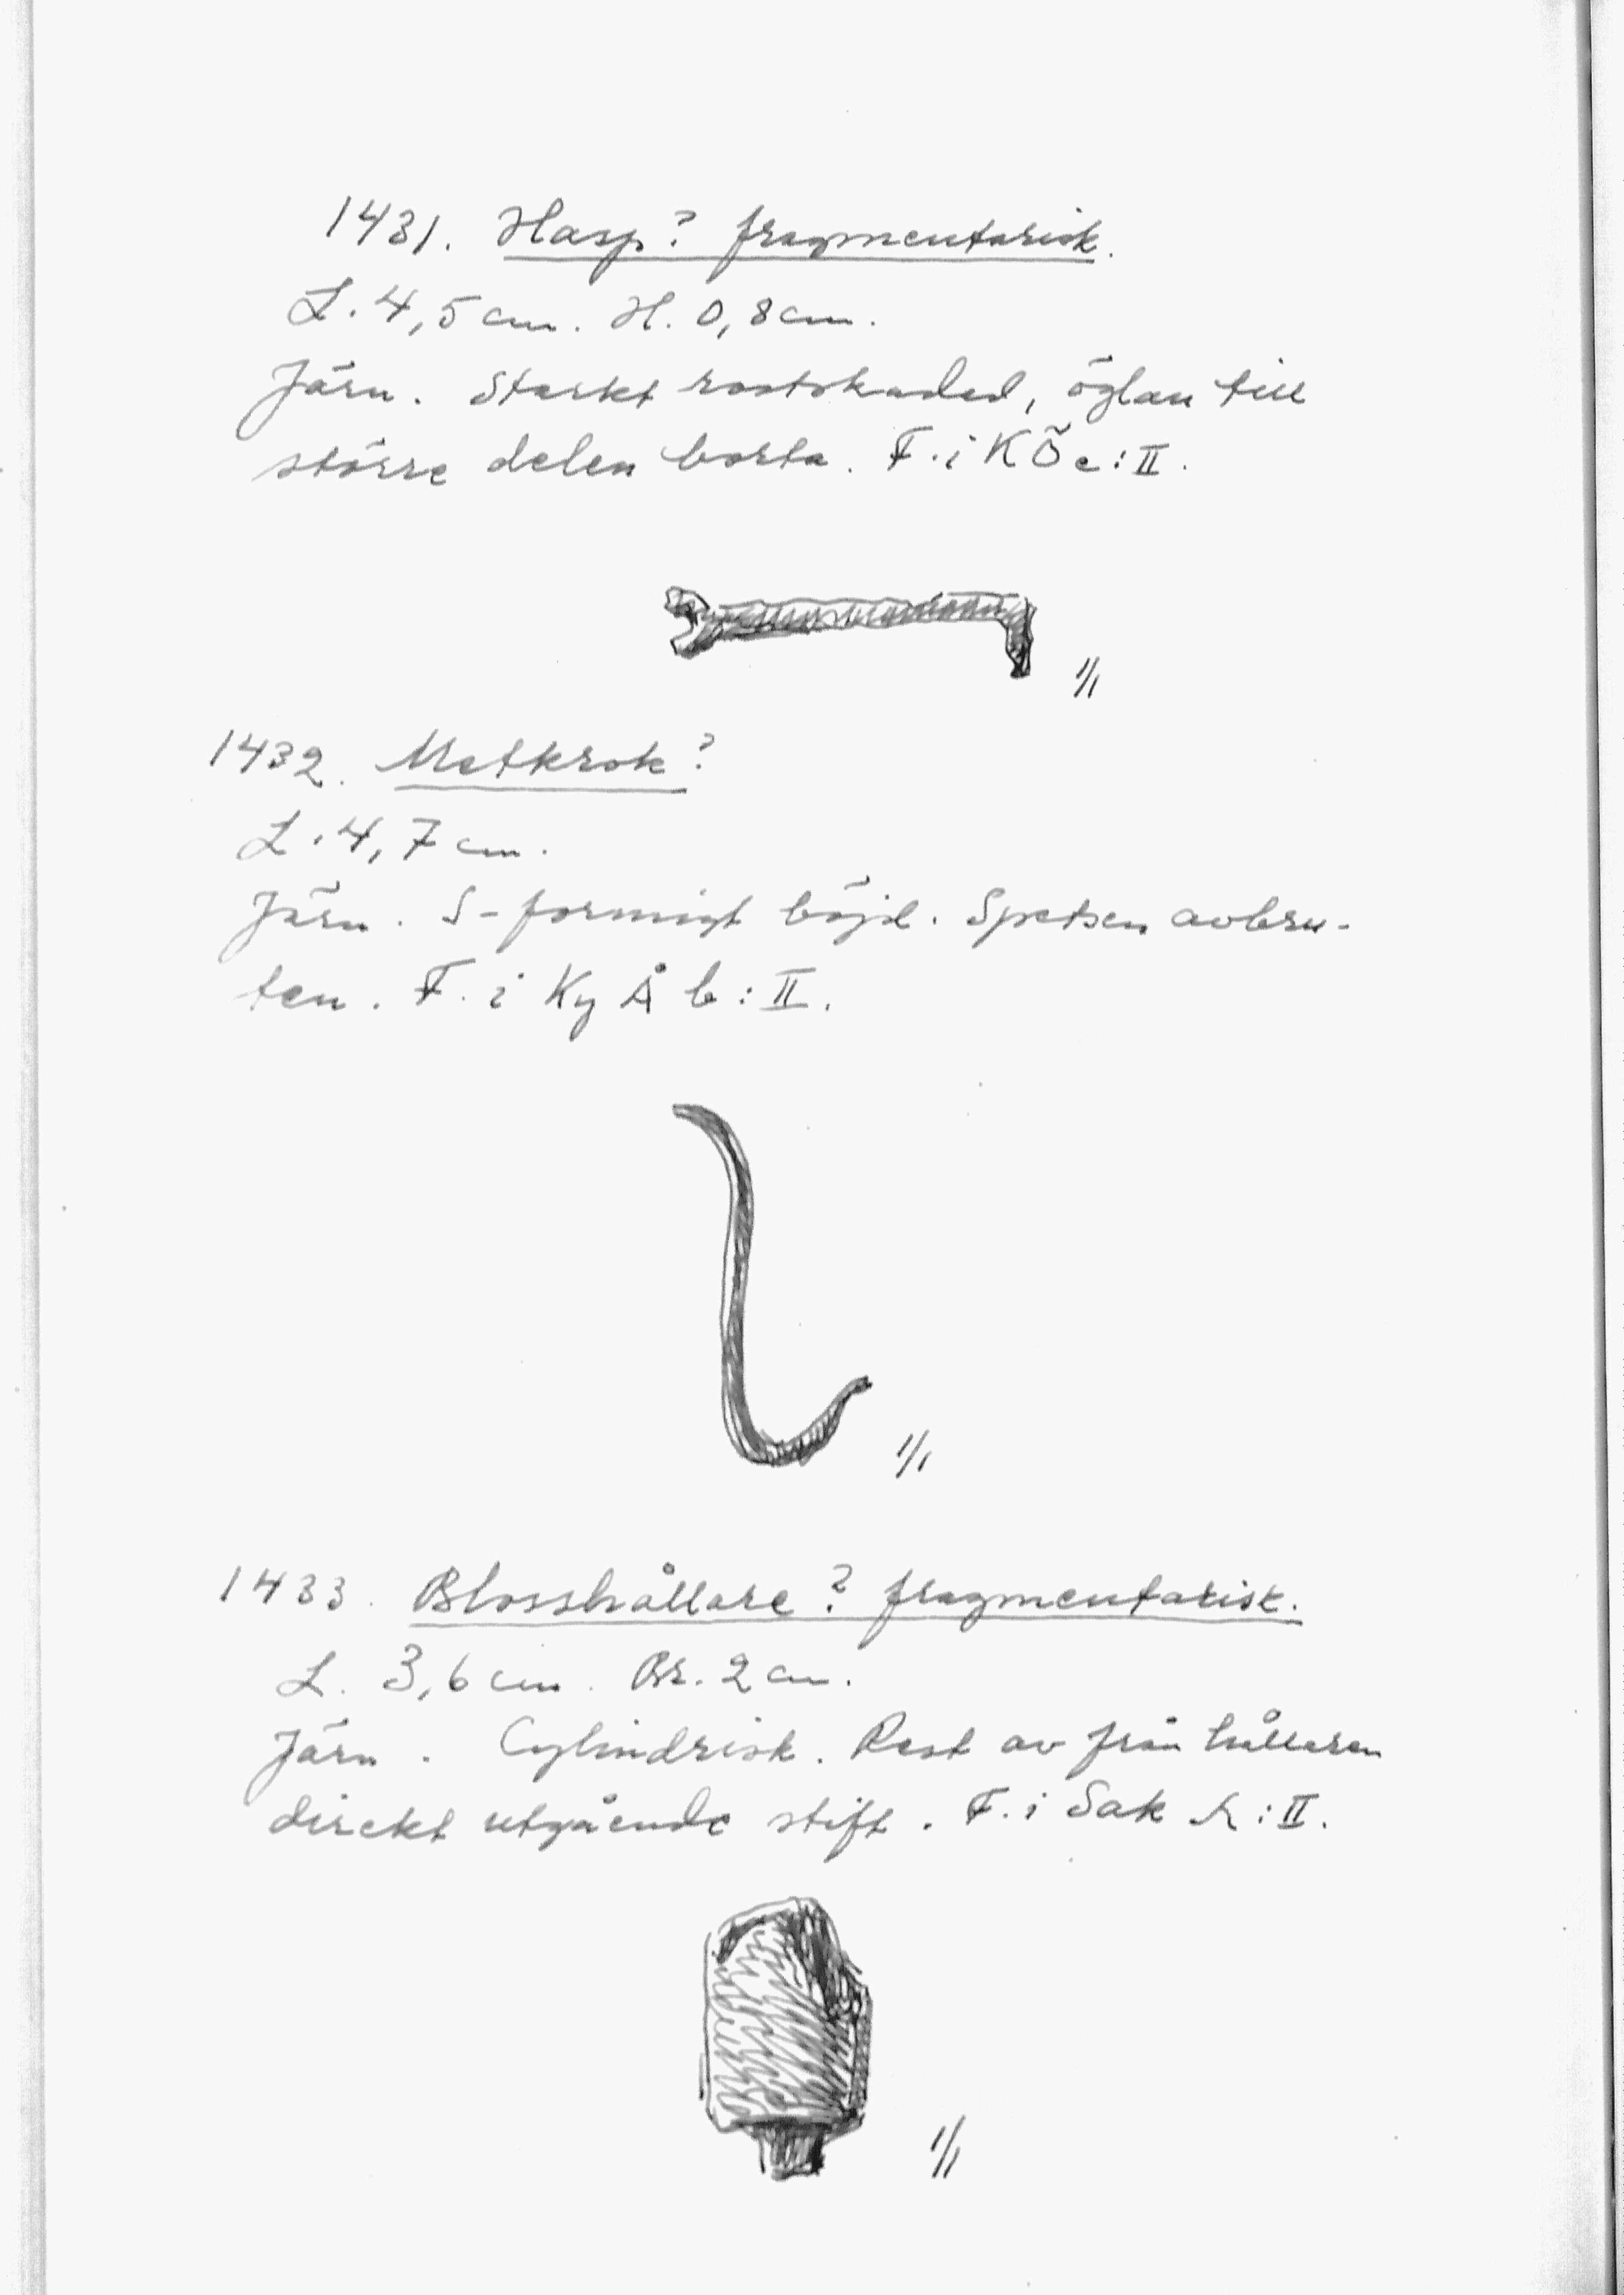 1431. Hasp? fragmentarisk.
L. 4,5 cm. H. 0,8 cm.
Järn. Starkt rostskadad, öglan till
större delen borta. F. i KÖe:II.
1/1
1432. Metkrok?
L. 4,7 cm.
Järn. S-formigt böjd. Spetsen avbru-
ten. F. i Ky Å b:II.
1/1
1433. Blosshållare? fragmentarisk.
L. 3,6 cm. Br. 2 cm.
Järn. Cylindrisk. Rest av från hållaren
direkt utgående stift. F. i Sak :II.
1/1